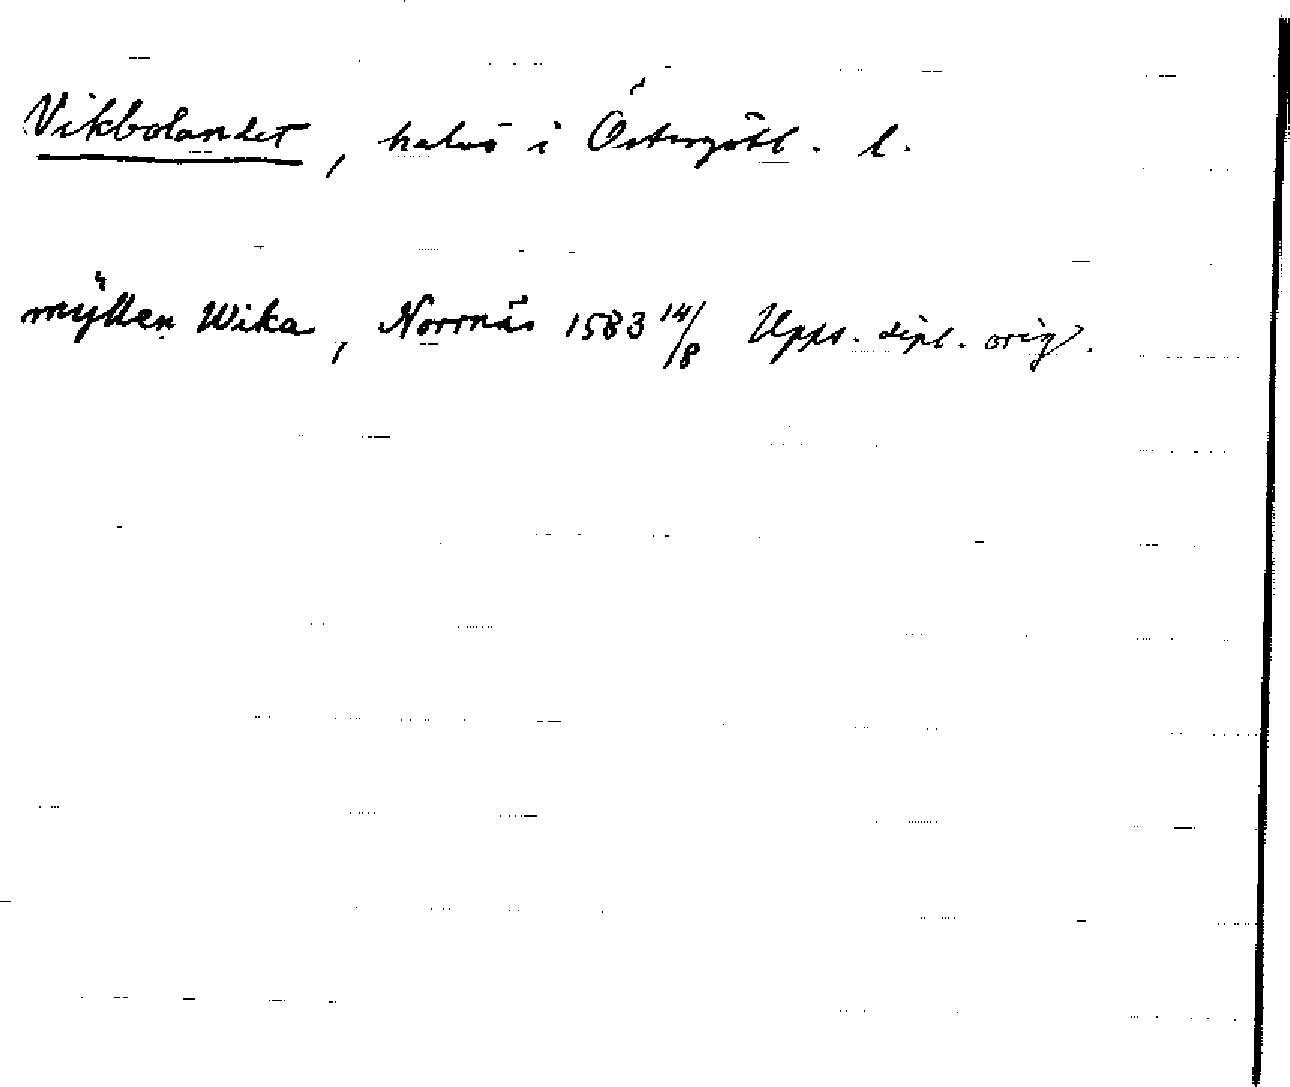 Vikbolandet, halvö i Östergötl. l.
mykken Wika, Norrnäs 1583 14/8 Upps. dipl. orig.